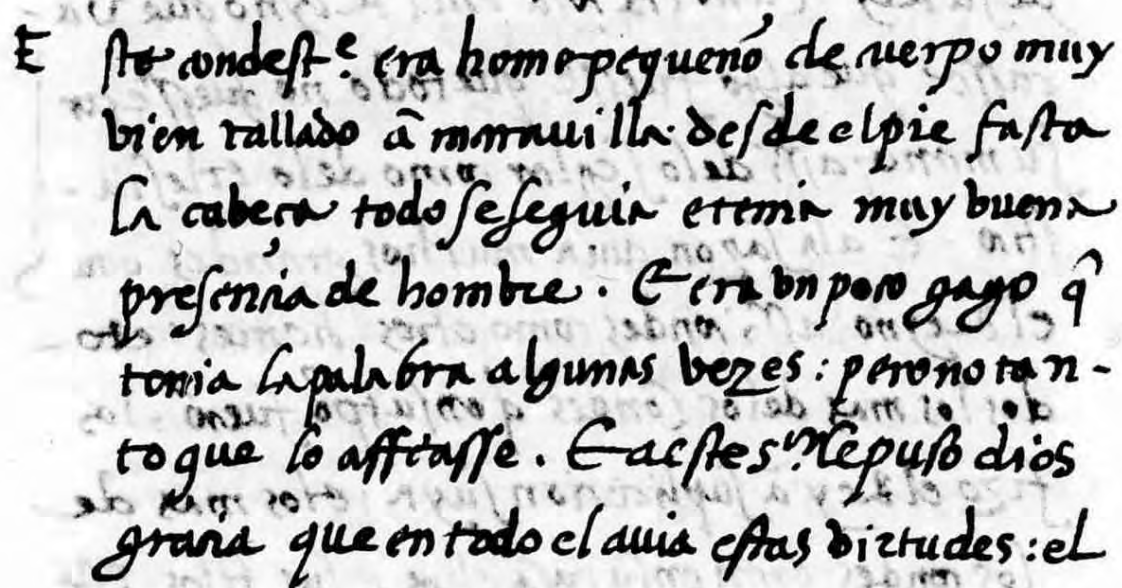 Este condest.e era home pequeño de cuerpo muy
bien tallado a marauilla. desde el pie fasta
la cabeça todo se seguia e tenia muy buena
presençia de hombre. E era vn poco gago q̃
tenia la palabra algunas vezes: pero no tan-
to que lo affeasse. E a este s.or le puso dios
gracia que en todo el auia estas virtudes: el